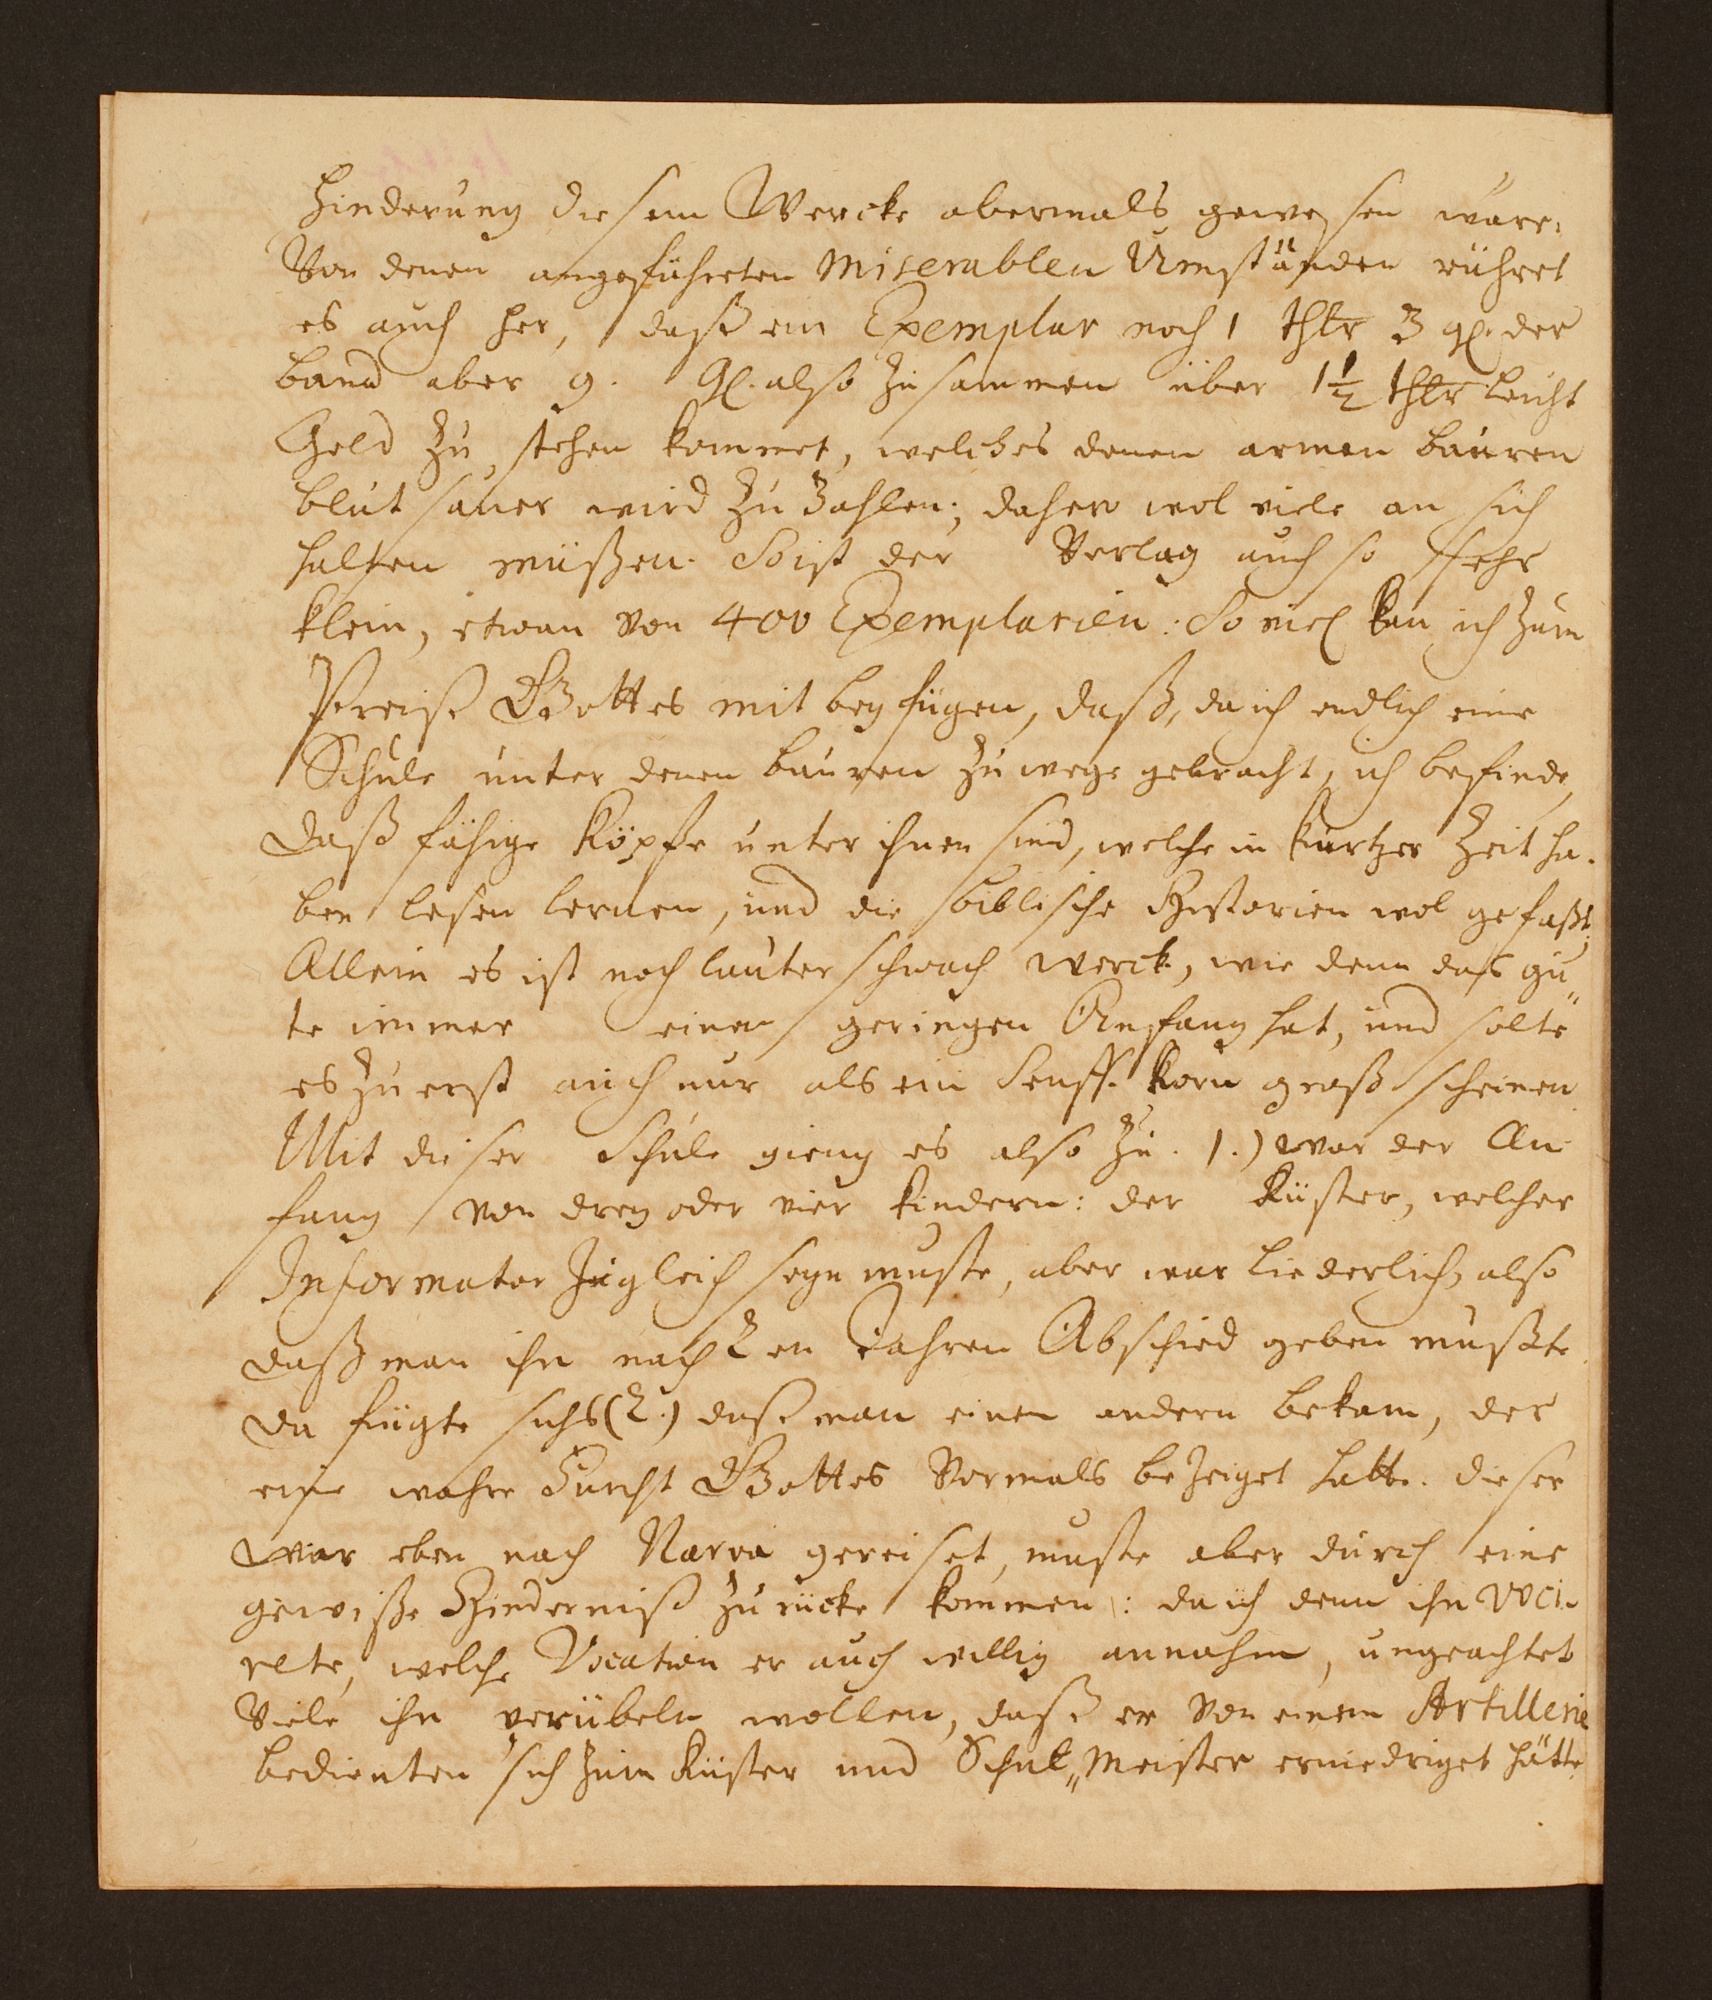 hinderung diesem Wercke abermals gewesen wäre.
Von denen angeführeten miserablen Umständen rühret
es auch her, daß ein Exemplar noch 1 thlr 3 gl. der
band aber 9. Gl. also zusammen über 1½ thlr leicht
Geld zu stehen kommet, welches denen armen bauren
blut sauer wird zu zahlen; daher wol viele an sich
halten müßen. So ist der Verlag auch so sehr
klein, etwan von 400 Exemplarien: So viel kan ich zum
Preise Gottes mit beyfügen, daß, da ich endlich eine
Schule unter denen bauren zu wege gebracht, ich befinde,
daß fähige Köpffe unter ihnen sind, welche in kurtzer Zeit ha-
ben lesen lernen, und die biblische Historien wol gefaßt.
Allein es ist noch lauter schwach werck, wie denn das gu„
te immer einen geringen Anfang hat, und solte
es zu erst auch nur als ein Senff-korn groß scheinen
Mit dieser Schule gieng es also zu. 1.) war der An-
fang von drey oder vier kindern: der Küster, welcher
Informator zugleich seyn muste, aber war liederlich, also
daß man ihn nach 2en Jahren Abschied geben mußte.
da fügte sichs (2.) daß man einen andern bekam, der
eine wahre Furcht Gottes Vormals bezeiget hatte. dieser
war eben nach Narva gereiset, muste aber durch eine
gewiße Hinderniß zurücke kommen: da ich denn ihn voci-
rete, welche Vocation er auch willig annahm, ungeachtet
Viele ihn verübeln wollen, daß er von einem Artillerie
bedienten sich zum Küster und Schul„Meister erniedriget hätte.